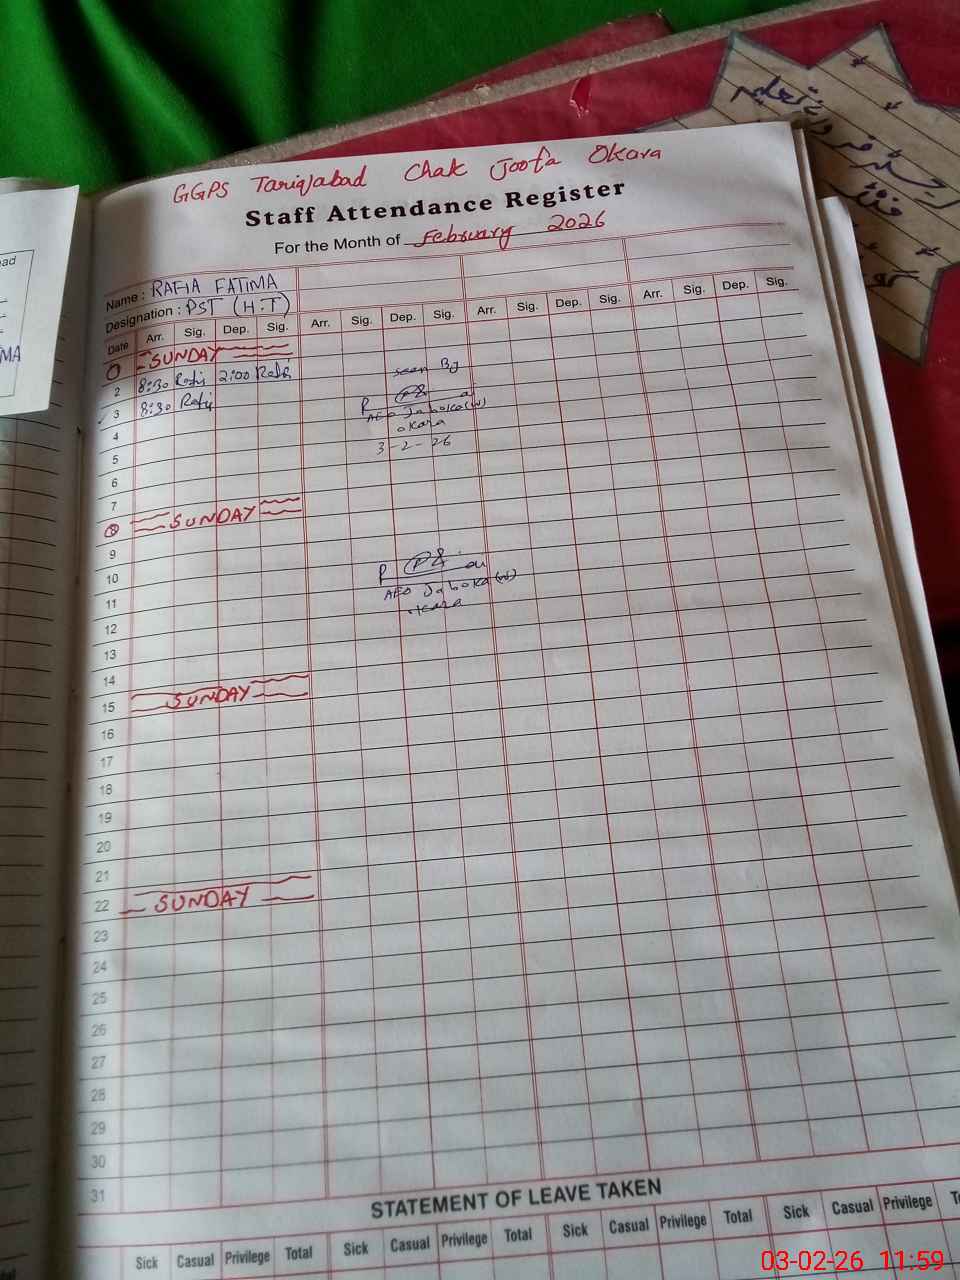 GGPS Tariqabad Chak Joofa Okara
Staff Attendance Register
For the Month of February 2026
Name : RAFIA FATIMA
Designation : PST (H.T)
Date Arr. Sig. Dep. Sig. Arr. Sig. Dep. Sig. Arr. Sig. Dep. Sig. Arr. Sig. Dep. Sig.
1 SUNDAY
2 8:30 Rafi 2:00 Rafi
3 8:30 Rafi
seen By
AEO Jaboka (w)
okara
3-2-26
4
5
6
7
8 SUNDAY
9
10
AEO Jaboka (w)
okara
11
12
13
14
15 SUNDAY
16
17
18
19
20
21
22 SUNDAY
23
24
25
26
27
28
29
30
31
STATEMENT OF LEAVE TAKEN
Sick Casual Privilege Total Sick Casual Privilege Total Sick Casual Privilege Total Sick Casual Privilege
03-02-26 11:59